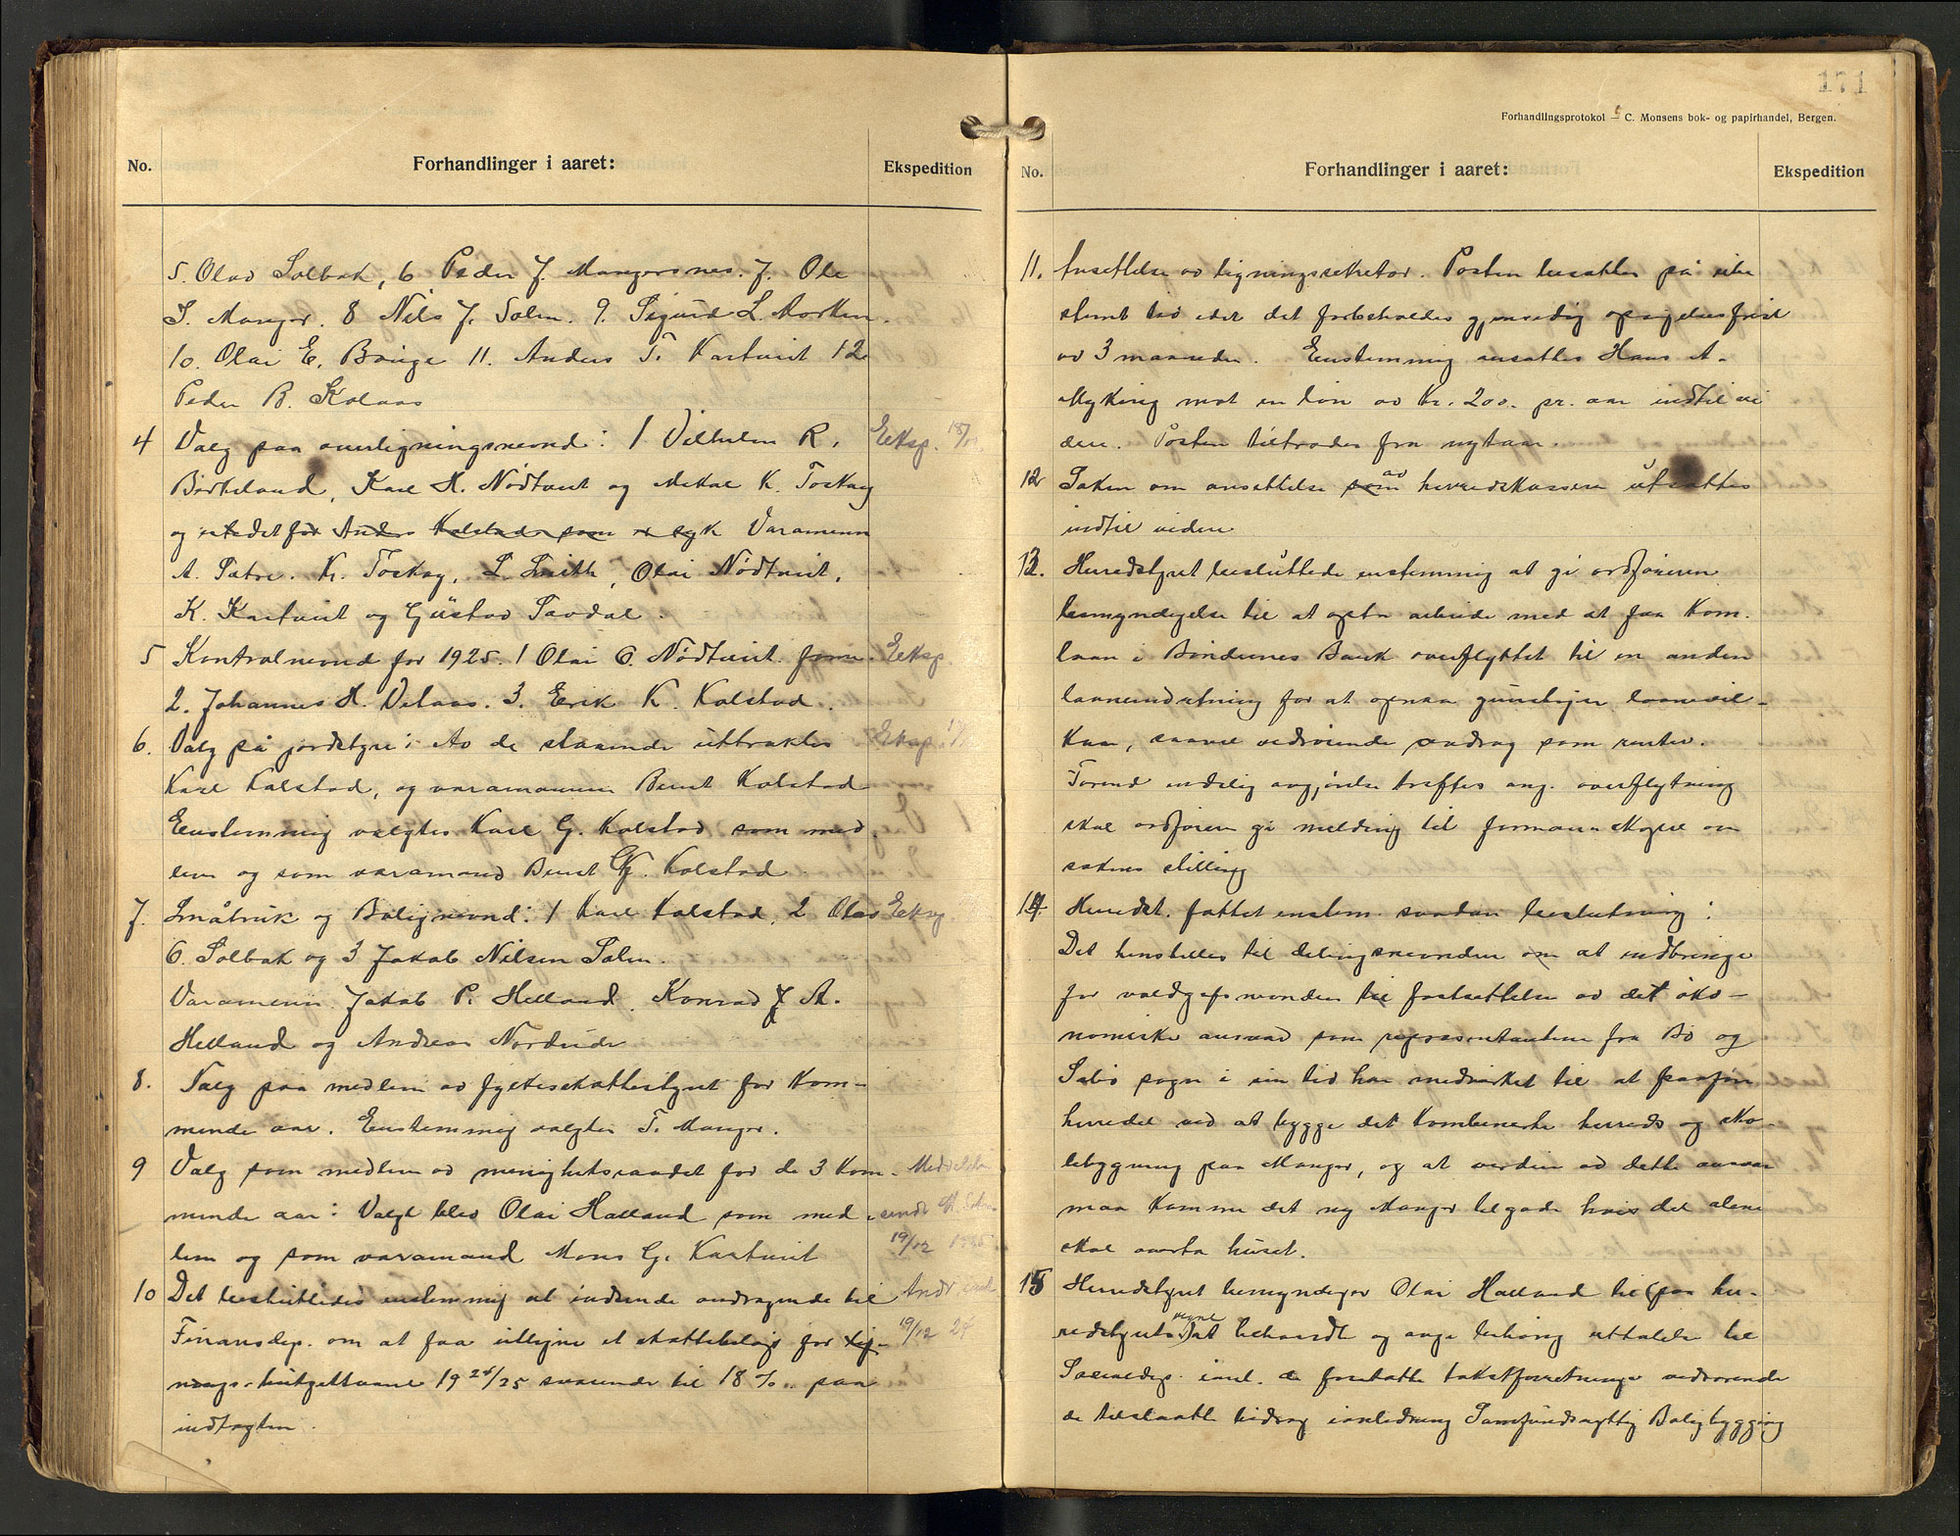 No. Forhandlinger i aaret: Ekspedition
5. Olav Solbak, 6 Peder J. Mangersnes. 7. Ole
S. Manger. 8 Nils J. Solem. 9. Sigurd L. Morken.
10. Olai E. Bauge 11. Anders T. Kartveit 12
Peder B. Kolaas
4 Valg paa overligningsnevnd: 1 Vilhelm R. Eksp.
Birkeland, Karl H. Nödtveit og Mikal K. Toskag
og istedetfor Anders Kolstad som er syk Varamenn
A. Sætre. K. Toskag, L. Smith, Olai Nödtveit,
K. Kartveit og Gustav Tavdal.
5 Kontrolnevnd for 1925. 1 Olai O. Nödtveit. form. Eksp.
2. Johannes H. Vetaas. 3. Erik K. Kolstad.
6. Valg på jordstyre: Av de staaende uttraktes Eksp.
Karl Kolstad, og varamannen Berent Kolstad
Enstemmig valgtes Karl G. Kolstad som med
lem og som varamand Berent G. Kolstad
7. Småbruk og Bolignevnd: 1 Karl Kolstad, 2 Olav Eeksp.
O. Solbak og 3 Jakob Nilsen Solem.
Varamenn Jakob P. Helland. Konrad J A.
Helland og Andreas Nordvik
8. Valg paa medlem av fylkesskattestyret for kom-
mende aar. Enstemmig valgtes T. Manger.
9 Valg som medlem av menighetsraadet for de 3 kom-
mende aar: Valgt blev Olai Halland som med
lem og som varamand Mons G. Kartveit 19/12
10 Det besluttedes enstemmig at indsende andragende til Andr.
Finansdep. om at faa utligne et skattebeløp for lig- 19/12 24
nings-budgettaaret 1924/25 svarende til 18 % paa
indtægten.
171
Forhandlingsprotokol – C. Monsens bok- og papirhandel, Bergen.
No. Forhandlinger i aaret: Ekspedition
11. Ansettelse av ligningssekretær. Posten besættes på ube
stemt tid idet det forbeholdes gjensidig opsigelsesfrist
av 3 maaneder. Enstemmig ansattes Hans A.
Myking mot en løn av kr. 200. pr. aar indtil vi
dere. Posten tiltrædes fra nytaar.
12 Saken om ansettelse som av herredskasserer utsattes
indtil videre
13. Herredstyret besluttede enstemmig at gi ordføreren
bemyndigelse til at opta arbeide med at faa kom.
laan i Böndernes Bank overflyttet til en anden
laaneindretning for at opnaa gunstiger laanevil-
kaar, saavel vedrørende avdrag som renter.
Førend endelig avgjørelse træffes ang. overflytning
skal ordfører gi melding til formannskapet om
sakens stilling
14. Herredst. fattet enstem. saadan beslutning:
Det henstilles til delingsnevnden om at indbringe
for voldgifsnevnden til fastsettelse av det öko-
nomiske ansvar som representantene fra Bö og
Sæbö sogn i sin tid har medvirket til at paaføre
herredet ved at bygge det kombinerte herreds og sko-
lebygning paa Manger, og at verdien av dette ansvar
maa komme det ny Manger tilgode hvis det alene
skal overta huset.
15 Herredstyret bemyndiger Olai Halland til (paa her-
redstyrets vegne) at behandle og avgi behørig uttalelse til
Socialdep. i anl. de foretatte takstforretninger vedrørende
de tilstaatte bidrag i anledning Samfundsnyttig Boligbygging